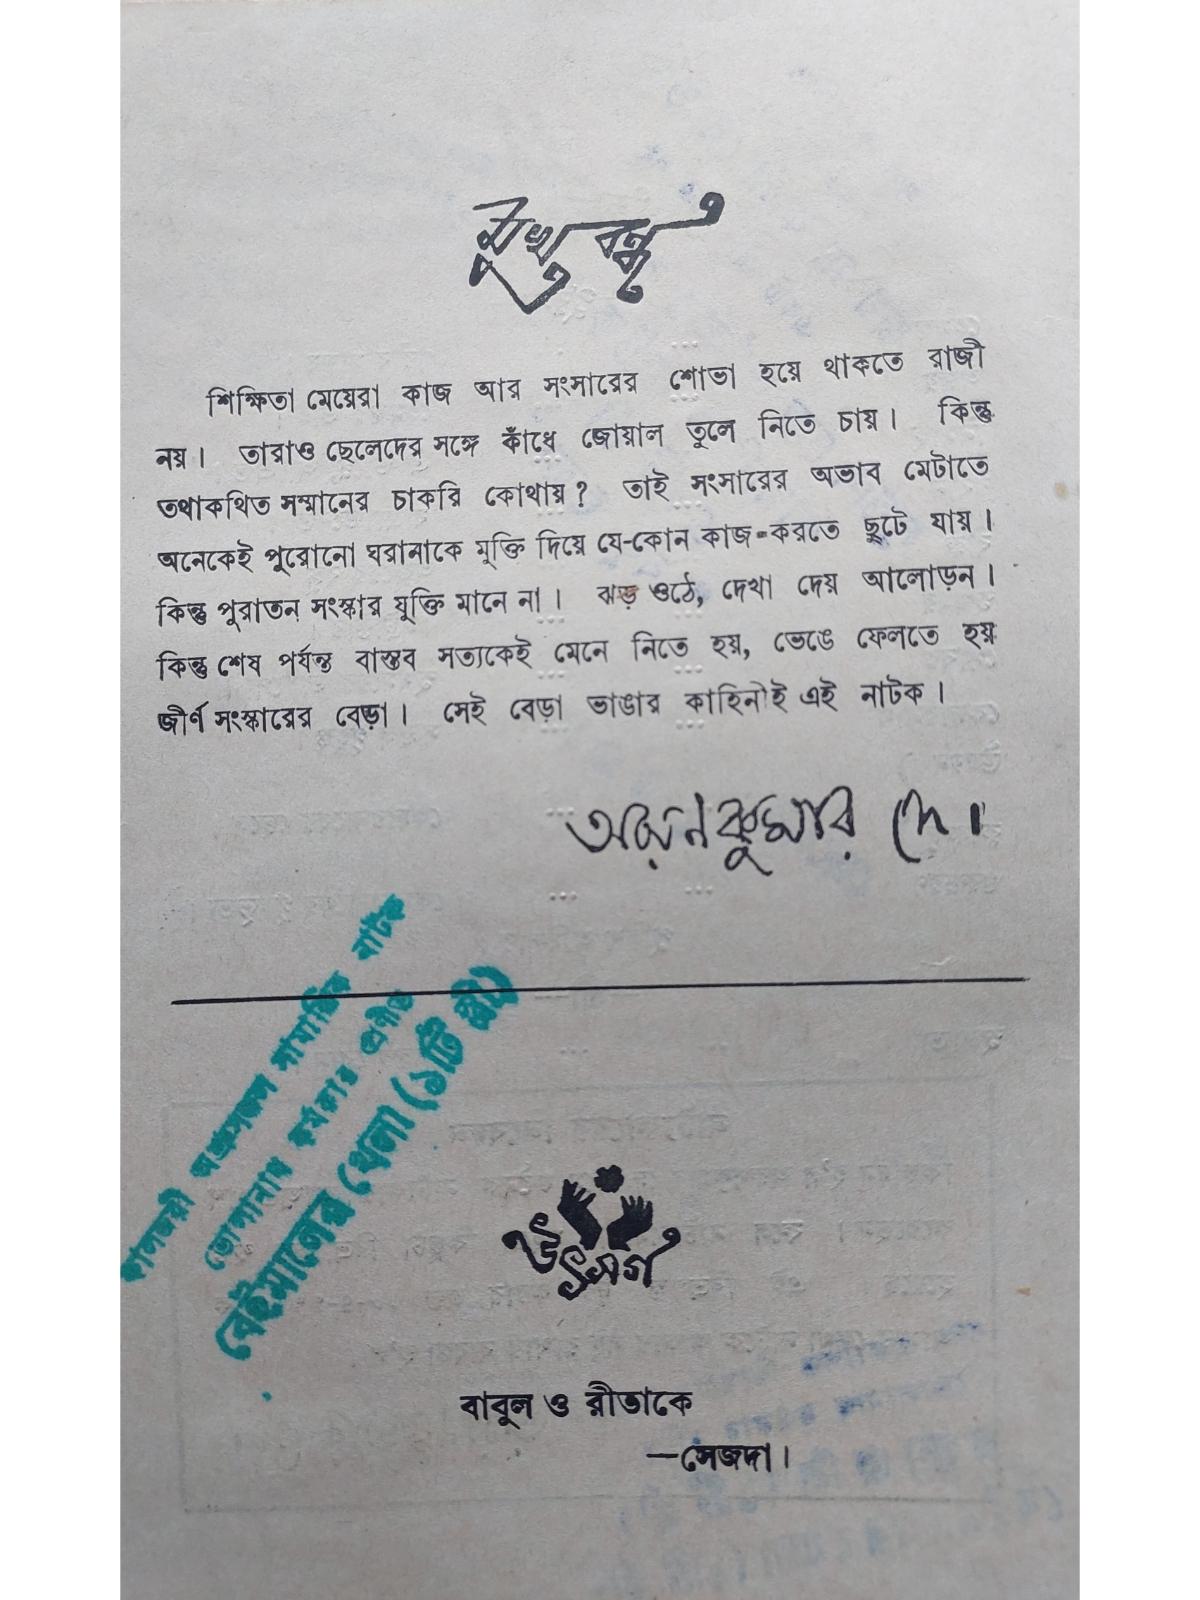 মুখবন্ধ
শিক্ষিতা মেয়েরা কাজ আর সংসারের শোভা হয়ে থাকতে রাজী
নয়। তারাও ছেলেদের সঙ্গে কাঁধে জোয়াল তুলে নিতে চায়। কিন্তু
তথাকথিত সম্মানের চাকরি কোথায়? তাই সংসারের অভাব মেটাতে
অনেকেই পুরোনো ঘরানাকে মুক্তি দিয়ে যে-কোন কাজ-করতে ছুটে যায়।
কিন্তু পুরাতন সংস্কার যুক্তি মানে না। ঝড় ওঠে, দেখা দেয় আলোড়ন।
কিন্তু শেষ পর্যন্ত বাস্তব সত্যকেই মেনে নিতে হয়, ভেঙে ফেলতে হয়
জীর্ণ সংস্কারের বেড়া। সেই বেড়া ভাঙার কাহিনীই এই নাটক।
কুমার দে।
কালজয়ী অশ্রুসজল সামাজিক নাটক
ভোলানাথ কর্মকার প্রণীত
বেইমানের খেলা (১টি স্ত্রী)
উৎসর্গ
বাবুল ও রীতাকে
—সেজদা।